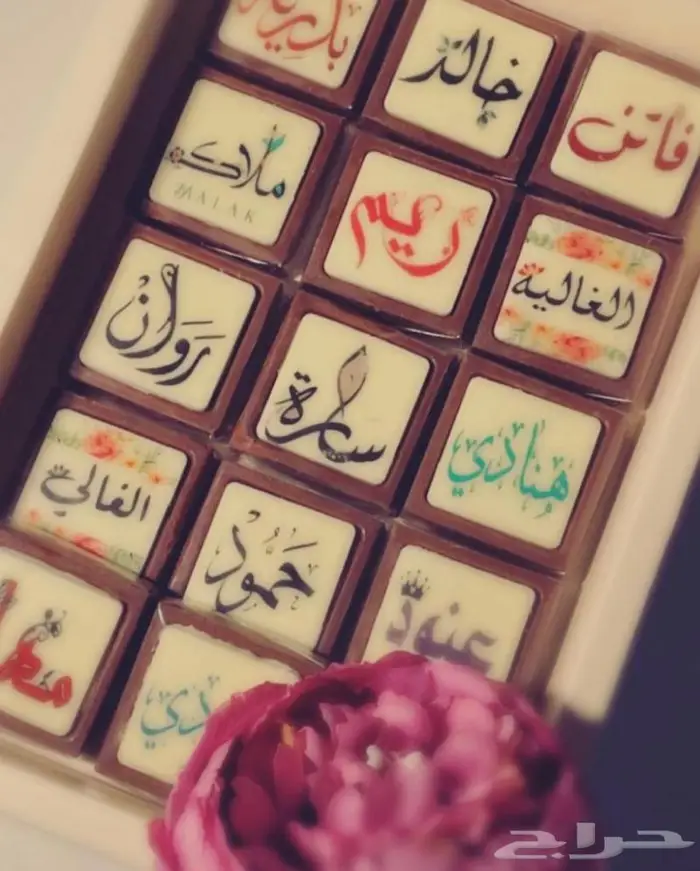 خالد
فاتن
ملاك
MALAK
ريم
الغالية
روان
سارة
هنادي
الغالي
حمود
عنود
حراج